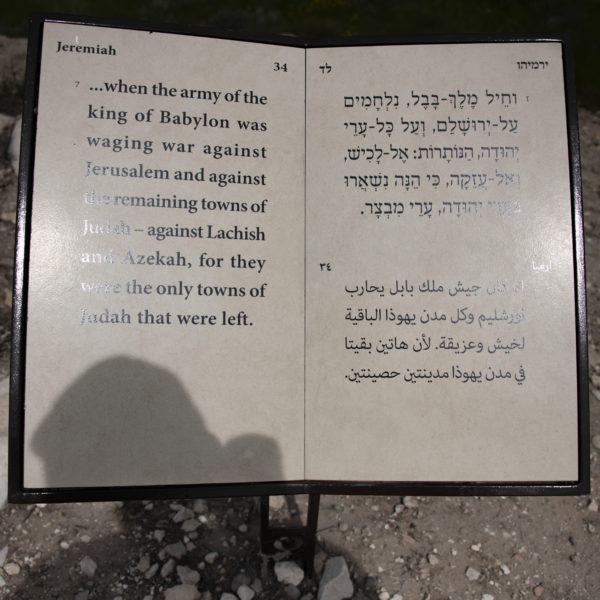 Jeremiah 34
7 ...when the army of the
king of Babylon was
waging war against
Jerusalem and against
the remaining towns of
Judah – against Lachish
and Azekah, for they
were the only towns of
Judah that were left.
ירמיהו לד
ז וחֵיל מֶלֶךְ-בָּבֶל, נִלְחָמִים
עַל-יְרוּשָׁלִַם, וְעַל כָּל-עָרֵי
יְהוּדָה, הַנּוֹתָרוֹת: אֶל-לָכִישׁ,
וְאֶל-עֲזֵקָה, כִּי הֵנָּה נִשְׁאֲרוּ
בְּעָרֵי יְהוּדָה, עָרֵי מִבְצָר.
٣٤
جيش ملك بابل يحارب
أورشليم وكل مدن يهوذا الباقية
لخيش وعزيقة. لأن هاتين بقيتا
في مدن يهوذا مدينتين حصينتين.